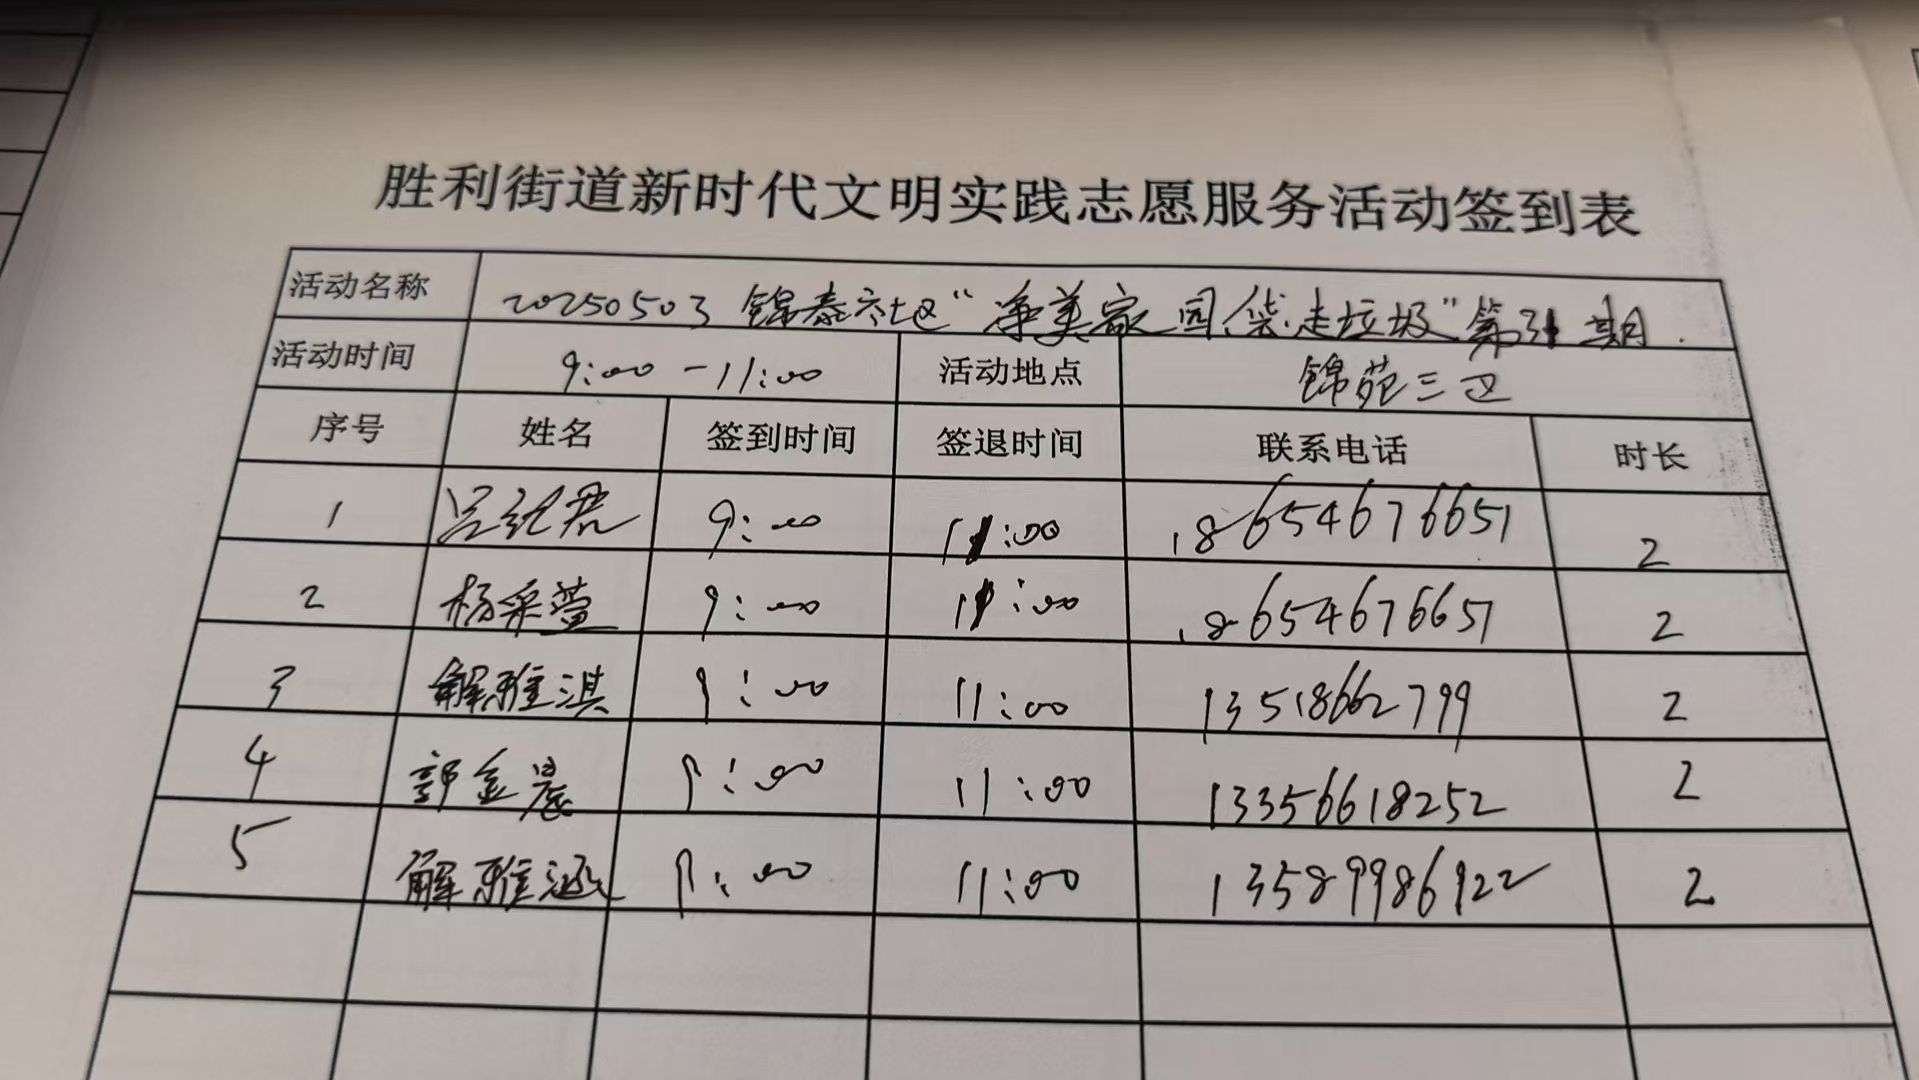 胜利街道新时代文明实践志愿服务活动签到表
活动名称 20250503 锦泰社区“净美家园,袋走垃圾”第31期.
活动时间 9:00-11:00 活动地点 锦苑三区
序号 姓名 签到时间 签退时间 联系电话 时长
1 吕纪君 9:00 11:00 18654676651 2
2 杨采萱 9:00 11:00 18654676651 2
3 解雅淇 9:00 11:00 13518662799 2
4 郭金晨 9:00 11:00 13356618252 2
5 解雅涵 9:00 11:00 13589986922 2